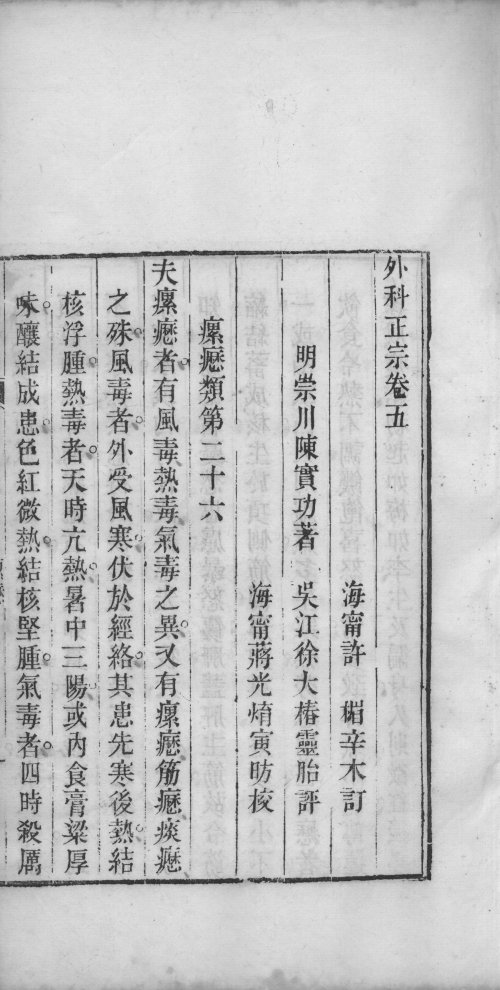 外科正宗卷五
海甯許楣辛木訂
明崇川陳實功著　吳江徐大椿靈胎評
海甯蔣光焴寅昉校
瘰癧類第二十六
夫瘰癧者有風毒熱毒氣毒之異又有瘰癧筋癧痰癧
之殊風毒者外受風寒伏於經絡其患先寒後熱結
核浮腫熱毒者天時亢熱暑中三陽或內食膏粱厚
味釀結成患色紅微熱結核堅腫氣毒者四時殺厲